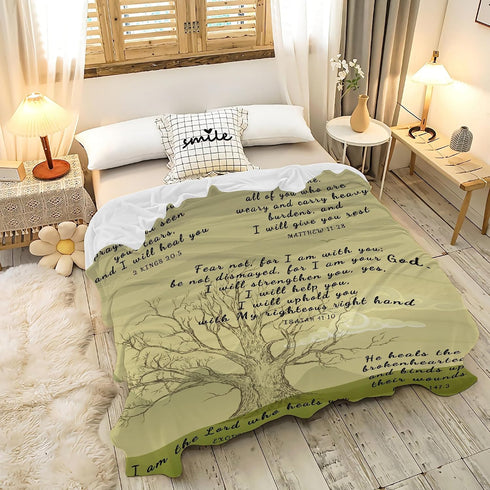 smile
all of you who are
weary and carry heavy
burdens, and
I will give you rest
MATTHEW 11:28
seen
your tears.
and I will heal you
2 KINGS 20:5
Fear not, for I am with you;
be not dismayed, for I am your God.
I will strengthen you, yes,
I will help you,
I will uphold you
with My righteous right hand
ISAIAH 41:10
He heals the
brokenhearted
and binds up
their wounds
147:3
I am the Lord who heals